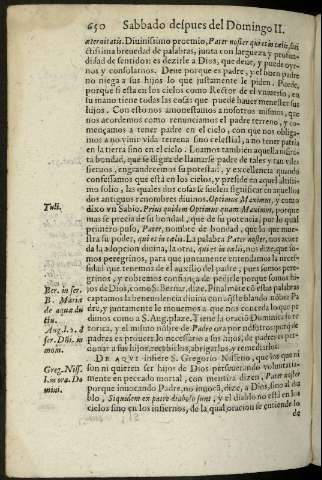 650 Sabbado despues del Domingo II.
æternitatis. Divinissimo proemio, Pater noster qui es in cœlis, suauissima breuedad de palabras, junta con largueza y profundidad de sentidos: es dezirle a Dios, que deue, y puede oyrnos y consolarnos. Deue porque es padre, y el buen padre
no niega a sus hijos lo que justamente le piden. Puede,
porque si esta en los cielos como Rector de el vniuerso, en
su mano tiene todas las cosas que puede hauer menester sus
hijos. Con esto nos amonestamos a nosotros mismos, que
nos acordemos como renunciamos el padre terreno, y començamos a tener padre en el cielo, con que nos obligamos a no viuir vida terrena sino celestial, a no tener patria
en la tierra sino en el cielo.
ta bondad, que se digna de llamarse padre de tales
sieruos, engrandecemos su potestad, y excellencia quando
confessamos que està en los cielos, y preside en aquel altissimo solio, las quales dos cosas se suelen significar con aquellos
dos antiguos renombres diuinos. Optimus Maximus, y como
Tuli.
dixo vn Sabio. Prius quidem Optimus quam Maximus, porque
mas se precia de su bondad, que de su potencia, por lo qual
primero puso, Pater, nombre de bondad, que lo que muestra su poder, qui es in cœlis. La palabra Pater noster, nos acuerda la adopcion diuina, la otra, qui es in cœlis, nos dize que somos peregrinos, para que juntamente entendamos la necessidad que tenemos de el auxilio del padre, pues somos peregrinos, y cobremos confiança de pedirle porque somos hijos de Dios, como S. Bernar. dize. Primeramente
Ber. in ser.
B. Maria
de aquæ ductu.
captamos la beneuolencia diuina con aqueste blando nobre Padre, y juntamente le mouemos a que nos conceda lo que pedimos como a S. Aug. plaze. Tiene la oracion Dominica
Aug. l. 2. d
ser. Dñi. in
mon.
torica, y el mismo nobre de Padre ora por nosotros: porque de
padres es proueer lo necessario a sus hijos, de padres es perdonar a sus hijos, recebirlos, abrigarlos, y remediarlos.
DE AQVI infiere S. Gregorio Nisseno, que los que ni
Greg. Niss.
l. in ora. Domini.
son ni quieren ser hijos de Dios perseuerando voluntariamente en peccado mortal, con mentira dizen, Pater noster
porque inuocando Padre, no inuocã, dize, a Dios, sino al diablo, Siquidem ex patre diabolo sunt, y el diablo no està en los
cielos sino en los infiernos, de la qual oracion se entiende lo
de